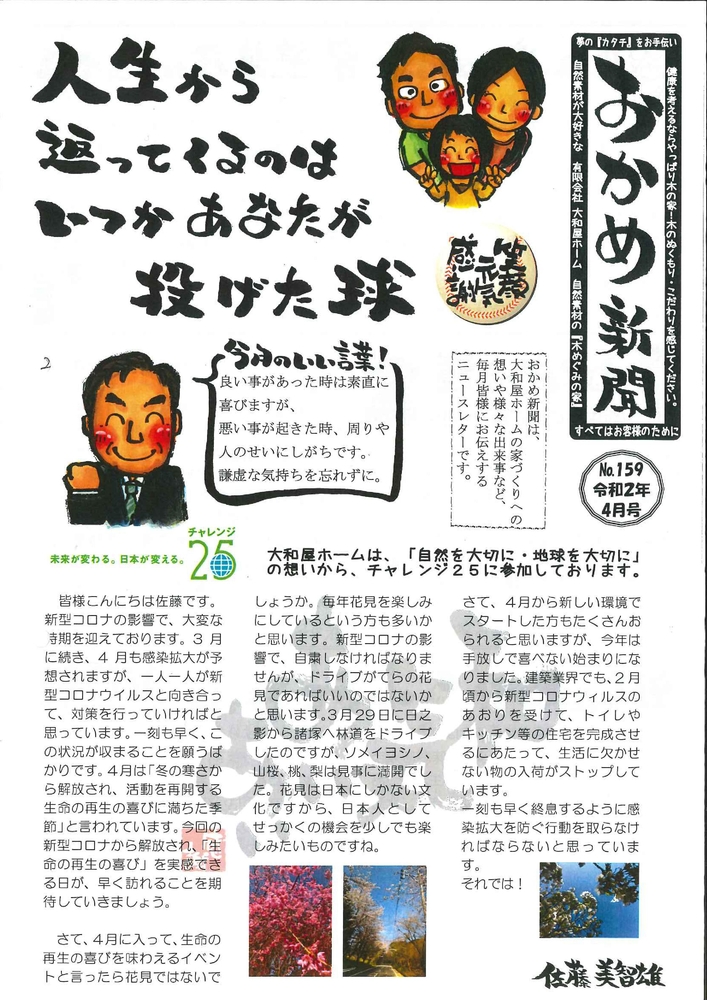 夢の『カタチ』をお手伝い
健康を考えるならやっぱり木の家！木のぬくもり・こだわりを感じてください。
おかめ新聞
自然素材が大好きな 有限会社 大和屋ホーム 自然素材の『木めぐみの家』
すべてはお客様のために
No.159
令和2年
4月号
人生から
返ってくるのは
いつか あなたが
投げた球
笑顔
元気
感謝
おかめ新聞は、
大和屋ホームの家づくりへの
想いや様々な出来事など、
毎月皆様にお伝えする
ニュースレターです。
2
今月のいい言葉！
良い事があった時は素直に
喜びますが、
悪い事が起きた時、周りや
人のせいにしがちです。
謙虚な気持ちを忘れずに。
チャレンジ
未来が変わる。日本が変える。
25
大和屋ホームは、「自然を大切に・地球を大切に」
の想いから、チャレンジ２５に参加しております。
皆様こんにちは佐藤です。
新型コロナの影響で、大変な
時期を迎えております。３月
に続き、４月も感染拡大が予
想されますが、一人一人が新
型コロナウイルスと向き合っ
て、対策を行っていければと
思っています。一刻も早く、こ
の状況が収まることを願うば
かりです。４月は「冬の寒さか
ら解放され、活動を再開する
生命の再生の喜びに満ちた季
節」と言われています。今回の
新型コロナから解放され、「生
命の再生の喜び」を実感でき
る日が、早く訪れることを期
待していきましょう。
さて、４月に入って、生命の
再生の喜びを味わえるイベン
トと言ったら花見ではないで
しょうか。毎年花見を楽しみ
にしているという方も多いか
と思います。新型コロナの影
響で、自粛しなければなりま
せんが、ドライブがてらの花
見であればいいのではないか
と思います。３月29日に日之
影から諸塚へ林道をドライブ
したのですが、ソメイヨシノ、
山桜、桃、梨は見事に満開でし
た。花見は日本にしかない文
化ですから、日本人として
せっかくの機会を少しでも楽
しみたいものですね。
さて、４月から新しい環境で
スタートした方もたくさんお
られると思いますが、今年は
手放しで喜べない始まりにな
りました。建築業界でも、２月
頃から新型コロナウィルスの
あおりを受けて、トイレや
キッチン等の住宅を完成させ
るにあたって、生活に欠かせ
ない物の入荷がストップして
います。
一刻も早く終息するように感
染拡大を防ぐ行動を取らなけ
ればならないと思っていま
す。
それでは！
佐藤 美智雄